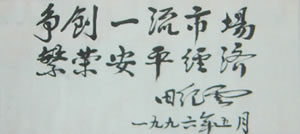 争创一流市場
繁荣安平經濟
田纪雲
一九九六年正月